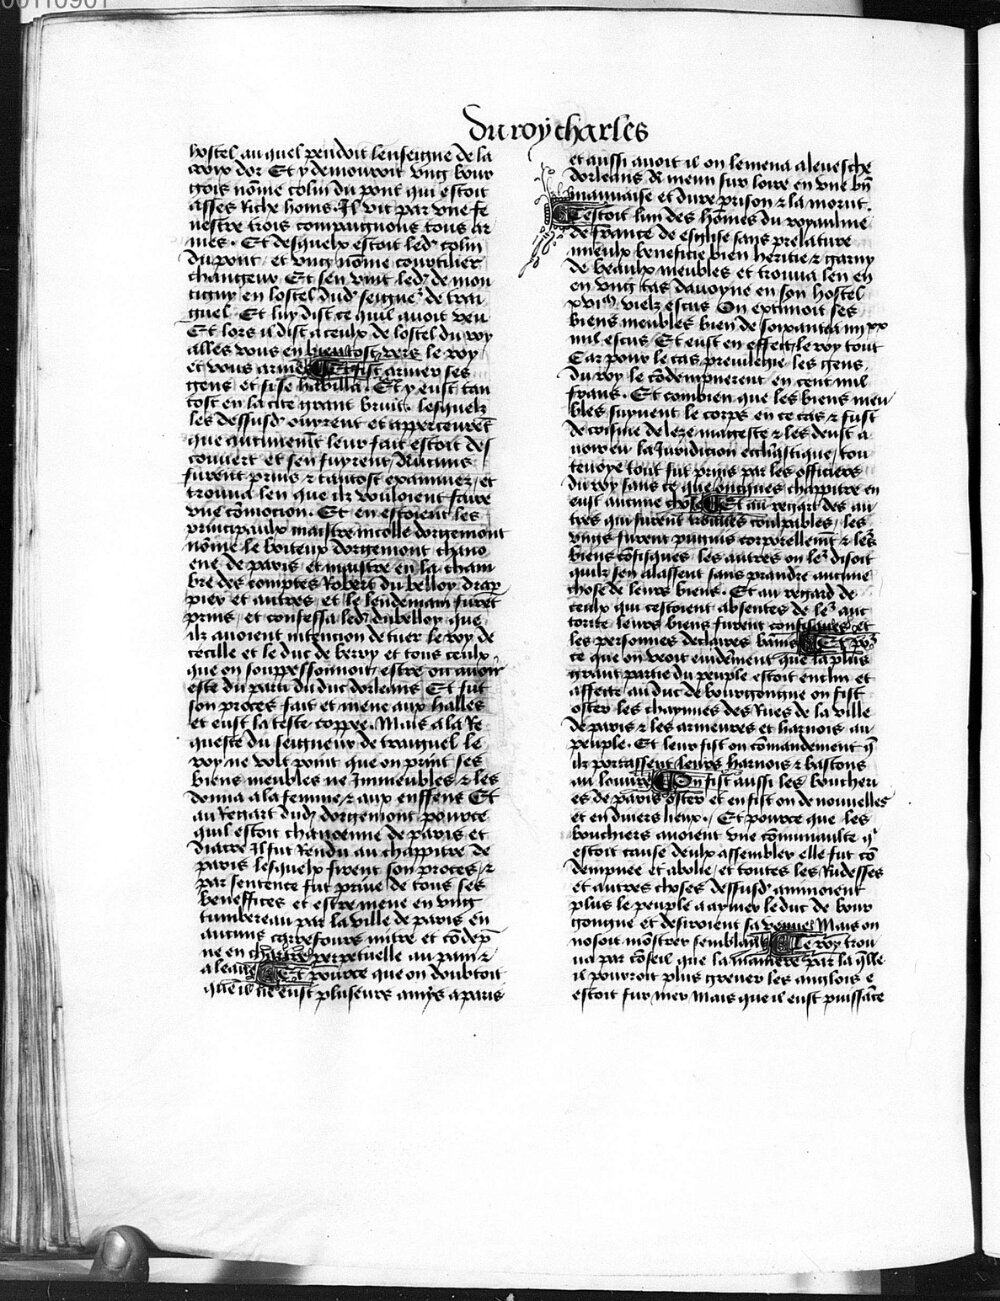 00110901
Du roy charles
hostel auquel pendoit lenseigne de la
croix dor Et y demouroit ung bour
gois nōme colin du pont qui estoit
asses Riche homs. Il vit par une fe
nestre trois compaignons tous ar
mes. Et desquelx estoit led' colin
du pont, et ung nōme courtilier
changeur Et sen vint led' de mon
tigny en lostel dud' seigne' de trai
guel. Et luy dist ce quil avoit veu
Et lors il dist a ceulx de lostel du roy
alles vous en bientost vers le roy
et vous armes Et fist armer ses
gens et si se habilla. Et y eust tan
tost en la cite grant bruit. lesquelz
les dessusd' ouyrent et apperceurēt
que aucunemēt leur fait estoit des
couvert et sen fuyrent, Aucuns
furent prins & tantost examinez, et
trouva len que ilz vouloient faire
une cōmocion. Et en estoient les
principaulx maistre nicolle dorgemont
nōme le boiteux dorgemont chano
ene de paris et maistre en la cham
bre des comptes Robert du belloy drap
pier et autres et le lendemain furēt
prins, et confessa led' du belloy que
ilz avoient intencion de tuer le roy de
cecille et le duc de berry et tous ceulx
que on souppessonnoit estre ou avoir
este du parti du duc dorleans Et fut
son proces fait et mene aux halles
et eust la teste coppee. Mais a la Re
queste du seigneur de traiguel le
roy ne volt point que on prinst ses
biens meubles ne Immeubles & les
donna a la femme & aux enffens Et
au Regart dud' dorgemont pource
quil estoit chanoenne de paris et
diacre Il fut Rendu au chappitre de
paris lesquelx firent son proces &
par sentence fut prive de tous ses
beneffices et estre mene en ung
tumbereau par la ville de paris en
aucuns carrefours mitre et cōdep
ne en chartre perpetuelle au pain &
a leaue Et pource que on doubtoit
que il ne eust plusieurs amys a paris
et aussi avoit il on le mena a levesche
dorleans A meun sur loire en une bn̄
mauvaise et dure prison & la morut.
Cestoit lun des hōmes du royaulme
de france de esglise sans prelature
mieulx beneficie bien heritie & garny
de beaulx meubles et trouva len en
en ung tas davoyne en son hostel
xvi^m vielz escus On extimoit ses
biens meubles bien de soixante a iiii^xx
mil escus Et eust en effect le roy tout
Car pour le cas previlegie les gens
du roy le cōdempnerent en cent mil
frans. Et combien que les biens meu
bles suyvent le corps en ce cas & fust
de crisme de leze mageste & les deust a
voir eu la Juridicion eccl'iastique, tou
tevoye tout fut prins par les officiers
du roy sans ce que oncques chappitre en
eust aucune chose Et au regart des au
tres qui furent trouves coulpables, les
ungs furent punuis corporellemēt & le's
biens cōfisques les autres on le' disoit
quilz sen alassent sans prandre aucune
chose de leurs biens. Et au regard de
ceulx qui cestoient absentes de le' auc
torite leurs biens furent confisques et
les personnes declares bannis Et po'
ce que on veoit evidēment que la plus
grant partie du peuple estoit enclin et
affecte au duc de bourgongne on fist
oster les chaynnes des Rues de la ville
de paris & les armeures et harnois au
peuple. Et leur fist on cōmandement q̄
ilz portassent leurs harnois & bastons
au louvre On fist aussi les boucheri
es de paris oster et en fist on de nouvelles
et en divers lieux. Et pource que les
bouchiers avoient une cōmunaulte q'
estoit cause deulx assembler elle fut cō
dempnee et abolie, et toutes les Rudesses
et autres choses dessusd' anmoient
plus le peuple a aymer le duc de bour
gongne et desiroient sa venue Mais on
nosoit mōstrer semblant Le roy trou
va par cōseil que la maniere par laq̄lle
il pourroit plus grever les anglois e
estoit sur mer Mais que il eust puissāce